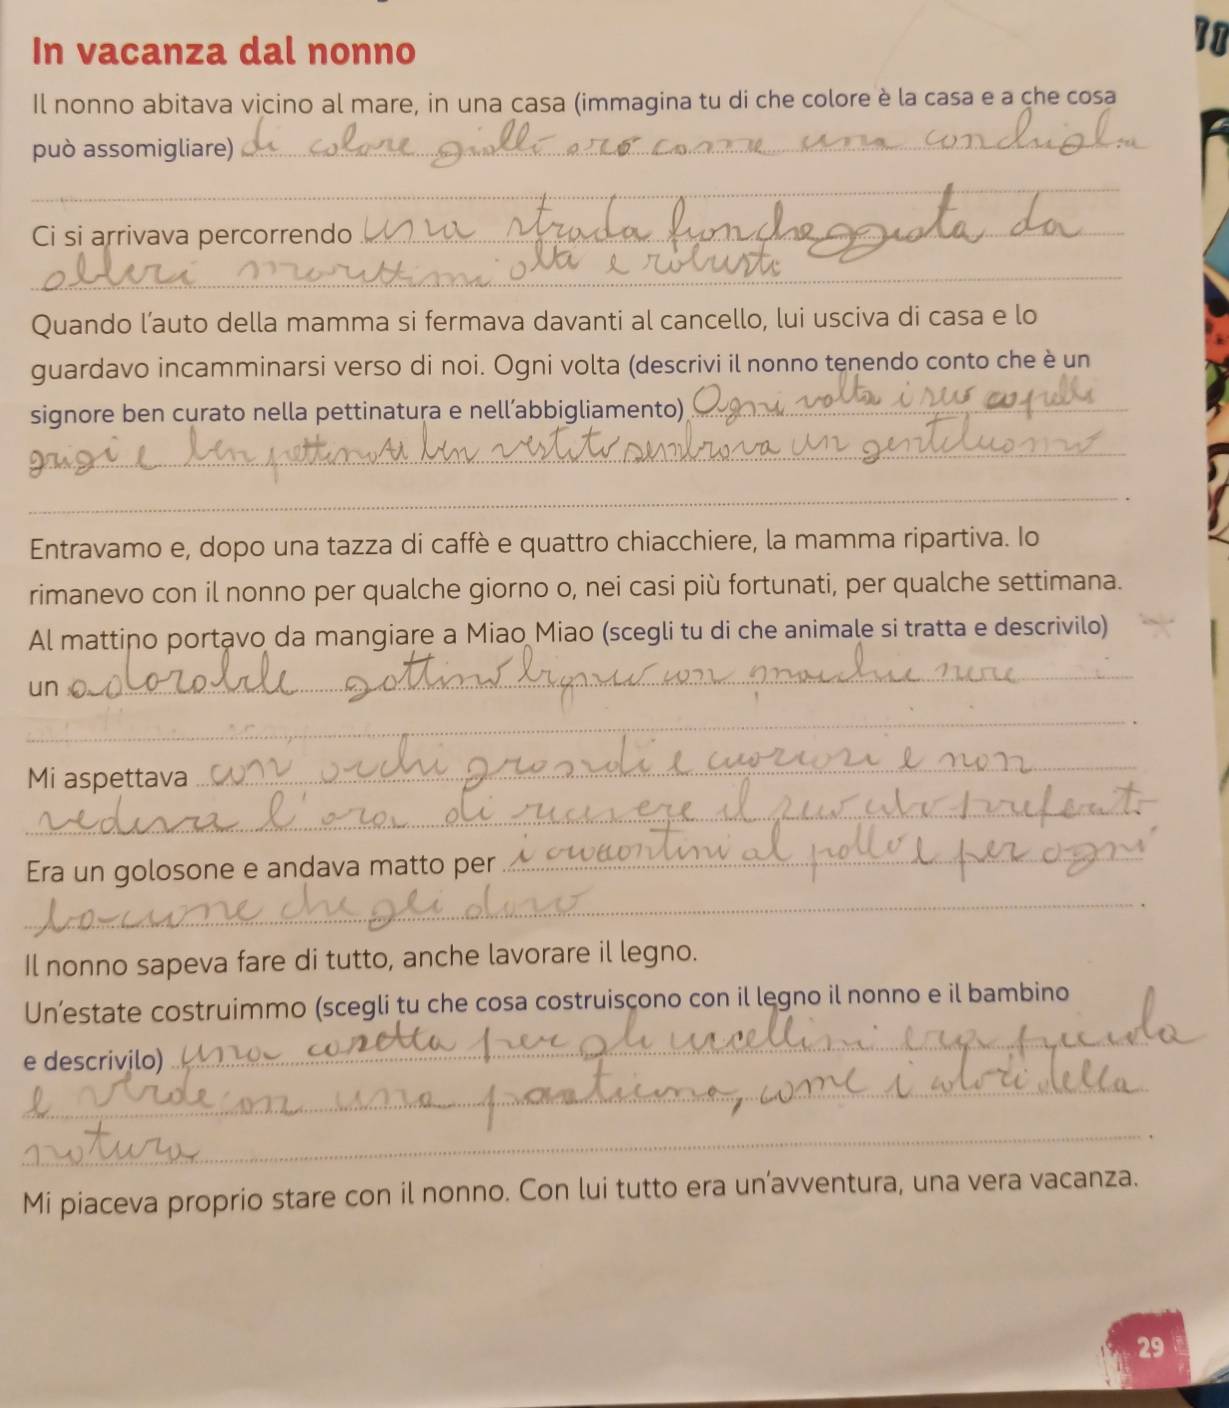 In vacanza dal nonno
Il nonno abitava vicino al mare, in una casa (immagina tu di che colore è la casa e a che cosa
può assomigliare) di colore giallo oro come una conchiglia
Ci si arrivava percorrendo una strada fiancheggiata da
alberi marittimi alti e robusti
Quando l'auto della mamma si fermava davanti al cancello, lui usciva di casa e lo
guardavo incamminarsi verso di noi. Ogni volta (descrivi il nonno tenendo conto che è un
signore ben curato nella pettinatura e nell'abbigliamento) Ogni volta i suo capelli
grigi e ben pettinati ben vestito sembrova un gentiluomo
.
Entravamo e, dopo una tazza di caffè e quattro chiacchiere, la mamma ripartiva. Io
rimanevo con il nonno per qualche giorno o, nei casi più fortunati, per qualche settimana.
Al mattino portavo da mangiare a Miao Miao (scegli tu di che animale si tratta e descrivilo)
un adorabile gattino bianco con macchie nere
.
Mi aspettava con occhi grandi e curiosi e non
vedeva l'ora di ricevere il suo cibo preferito
Era un golosone e andava matto per i croccantini al pollo e per ogni
boccone che gli davo .
Il nonno sapeva fare di tutto, anche lavorare il legno.
Un'estate costruimmo (scegli tu che cosa costruiscono con il legno il nonno e il bambino
e descrivilo) una casetta per gli uccellini era piccola
e verde con una porticina, come i colori della
natura .
Mi piaceva proprio stare con il nonno. Con lui tutto era un'avventura, una vera vacanza.
29